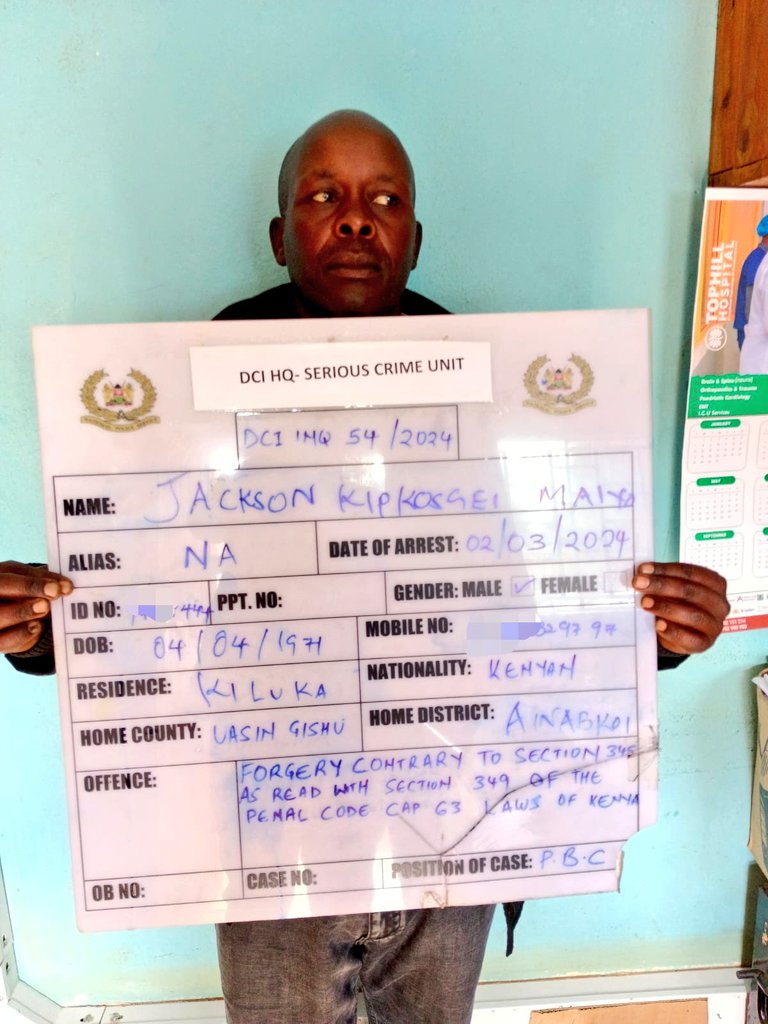 DCI HQ- SERIOUS CRIME UNIT
DCI INQ 54/2024
NAME: JACKSON KIPKOSGEI MAIYO
ALIAS: NA
DATE OF ARREST: 02/03/2024
ID NO:
PPT. NO:
GENDER: MALE ✓ FEMALE
DOB: 04/04/1971
MOBILE NO:
RESIDENCE: KILUKA
NATIONALITY: KENYAN
HOME COUNTY: UASIN GISHU
HOME DISTRICT: AINABKOI
OFFENCE: FORGERY CONTRARY TO SECTION 345
AS READ WITH SECTION 349 OF THE
PENAL CODE CAP 63 LAWS OF KENYA
OB NO:
CASE NO:
POSITION OF CASE: P.B.C
TOPHILL
HOSPITAL
Brain & Spine (neuro)
Orthopaedics & Trauma
Paediatric Cardiology
ENT
I.C.U Services
JANUARY
MAY
SEPTEMBER